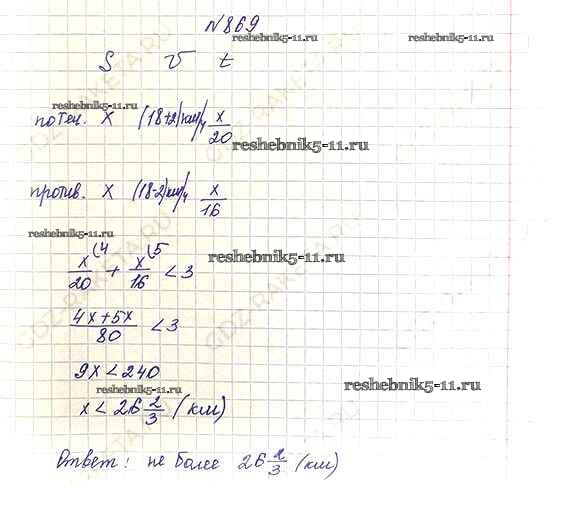 №869
reshebnik5-11.ru
reshebnik5-11.ru
S v t
reshebnik5-11.ru
по теч. x (18+2) км/ч x/20
reshebnik5-11.ru
против. x (18-2) км/ч x/16
reshebnik5-11.ru
x/20 (4 + x/16 (5 < 3
reshebnik5-11.ru
4x+5x/80 < 3
9x < 240
reshebnik5-11.ru
reshebnik5-11.ru
x < 26 2/3 (км)
Ответ: не более 26 2/3 (км)
GDZ-RAKETA.RU
GDZ-RAKETA.RU
GDZ-RAKETA.RU
GDZ-RAKETA.RU